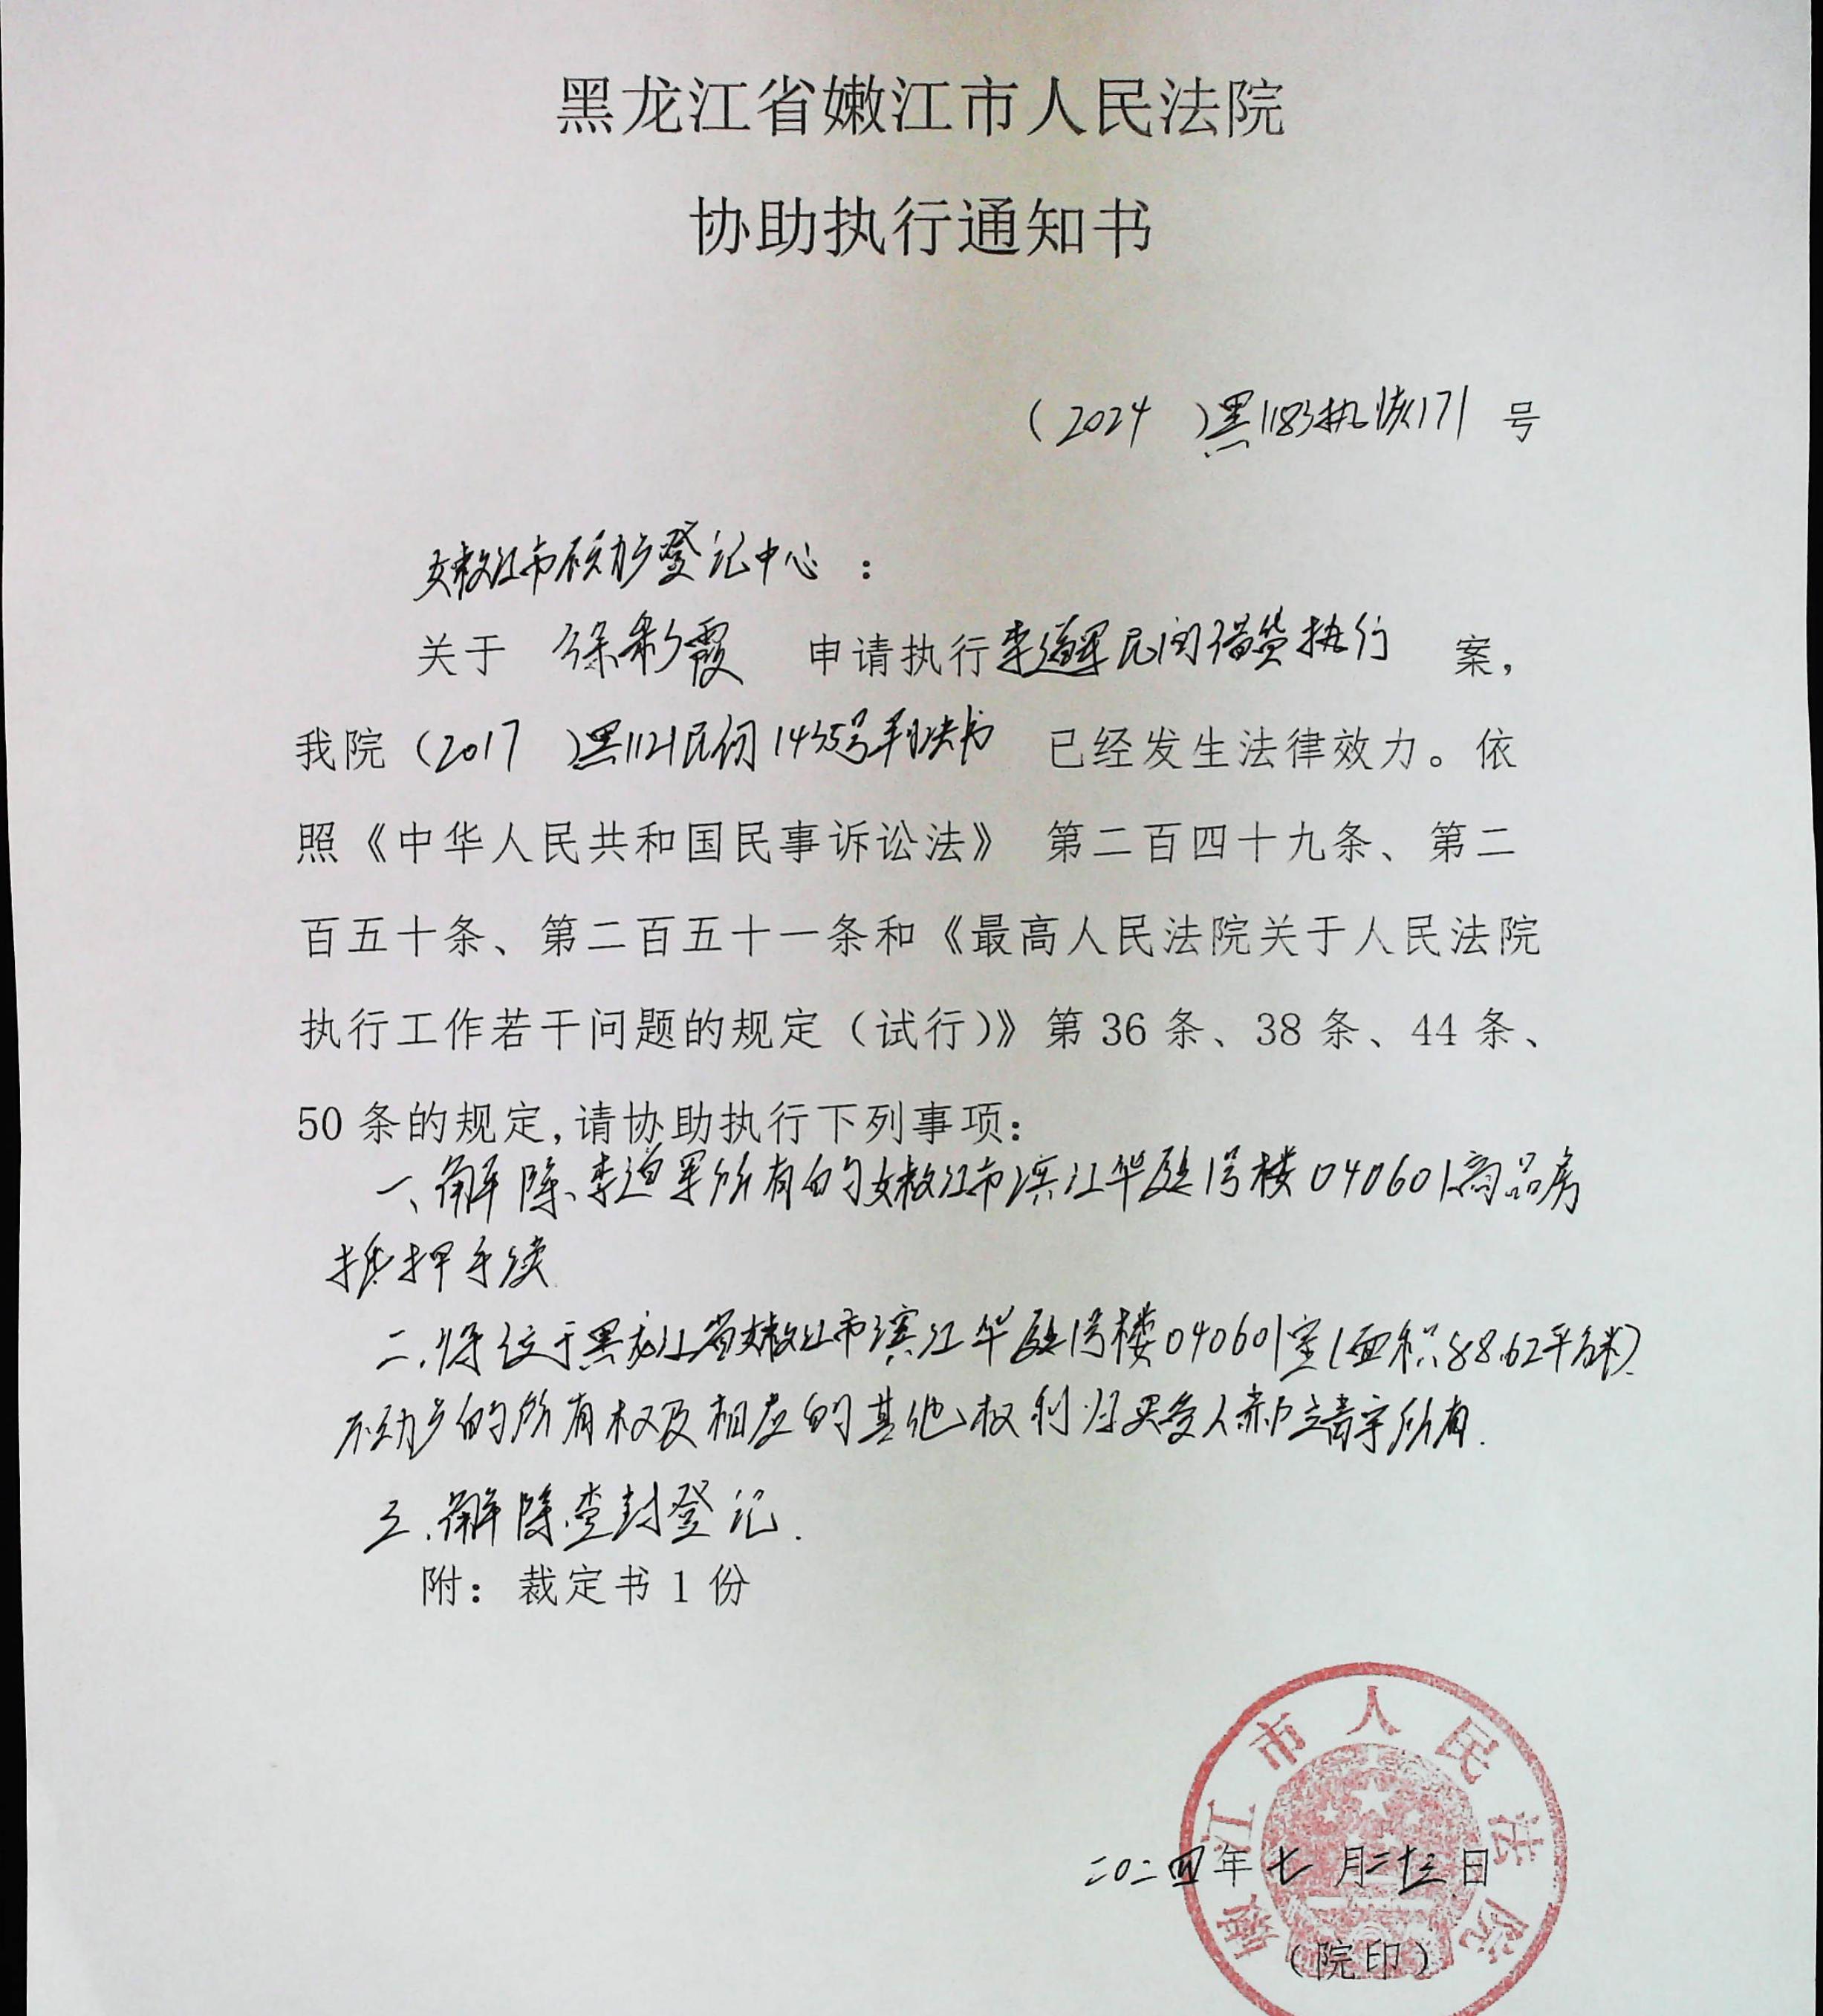 黑龙江省嫩江市人民法院
协助执行通知书
（2024 ）黑1183执恢171 号
嫩江市不动产登记中心：
关于 徐彩霞 申请执行李道军民间借贷执行 案，
我院（2017 ）黑1121民初1435号判决书 已经发生法律效力。依
照《中华人民共和国民事诉讼法》 第二百四十九条、第二
百五十条、第二百五十一条和《最高人民法院关于人民法院
执行工作若干问题的规定（试行）》第 36 条、38 条、44 条、
50 条的规定,请协助执行下列事项：
一、解除李道军所有的嫩江市滨江华庭1号楼040601商品房
抵押手续
二.将位于黑龙江省嫩江市滨江华庭1号楼040601室(面积88.62平方米)
不动产的所有权及相应的其他权利归买受人赫立青宇所有.
三.解除查封登记.
附：裁定书 1 份
嫩江市人民法院
二〇二四年七月二十三日
（院印）